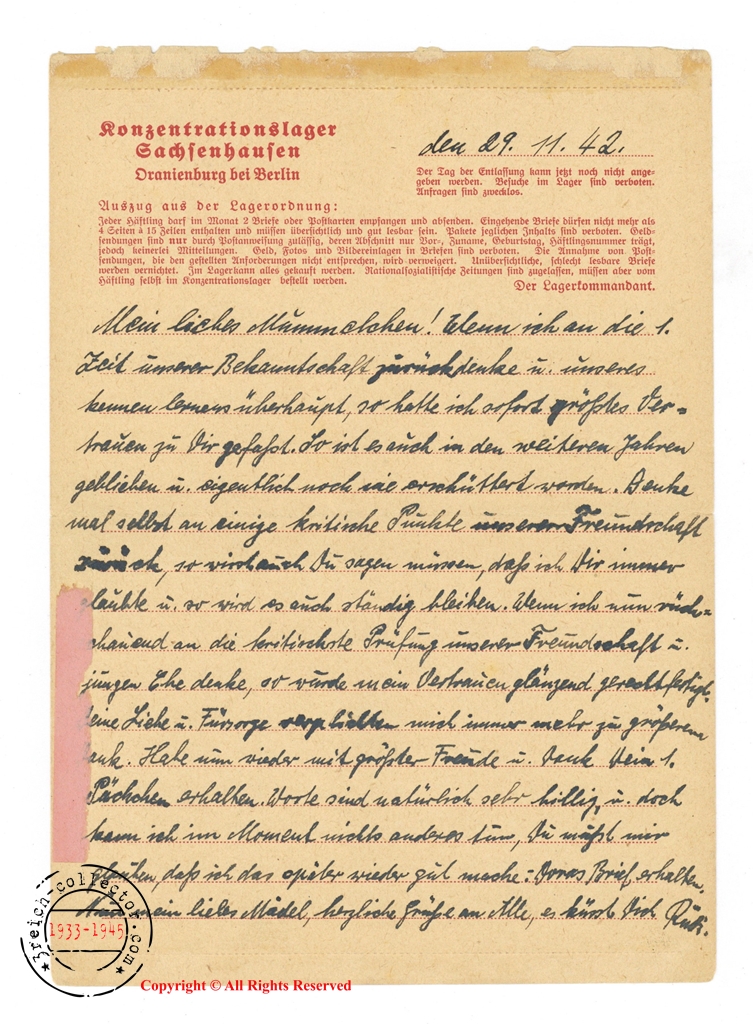 Konzentrationslager
Sachsenhausen
Oranienburg bei Berlin
den 29. 11. 42.
Der Tag der Entlassung kann jetzt noch nicht ange-
geben werden. Besuche im Lager sind verboten.
Anfragen sind zwecklos.
Auszug aus der Lagerordnung:
Jeder Häftling darf im Monat 2 Briefe oder Postkarten empfangen und absenden. Eingehende Briefe dürfen nicht mehr als
4 Seiten à 15 Zeilen enthalten und müssen übersichtlich und gut lesbar sein. Pakete jeglichen Inhalts sind verboten. Geld-
sendungen sind nur durch Postanweisung zulässig, deren Abschnitt nur Vor-, Zuname, Geburtstag, Häftlingsnummer trägt,
jedoch keinerlei Mitteilungen. Geld, Fotos und Bildereinlagen in Briefen sind verboten. Die Annahme von Post-
sendungen, die den gestellten Anforderungen nicht entsprechen, wird verweigert. Unübersichtliche, schlecht lesbare Briefe
werden vernichtet. Im Lager kann alles gekauft werden. Nationalsozialistische Zeitungen sind zugelassen, müssen aber vom
Häftling selbst im Konzentrationslager bestellt werden.
Der Lagerkommandant.
Mein liebes Mummelchen! Wenn ich an die 1.
Zeit unserer Bekanntschaft zurückdenke u. unseres
kennen lernens überhaupt, so hatte ich sofort größtes Ver=
trauen zu Dir gefaßt. So ist es auch in den weiteren Jahren
geblieben u. eigentlich noch nie erschüttert worden. Denke
mal selbst an einige kritische Punkte unserer Freundschaft
zurück, so wirst auch Du sagen müssen, daß ich Dir immer
glaubte u. so wird es auch ständig bleiben. Wenn ich nun rück=
schauend an die kritischste Prüfung unserer Freundschaft u.
jungen Ehe denke, so wurde mein Vertrauen glänzend gerechtfertigt.
Deine Liebe u. Fürsorge verpflichten mich immer mehr zu größerem
Dank. Habe nun wieder mit größter Freude u. Dank Dein 1.
Päckchen erhalten. Worte sind natürlich sehr billig, u. doch
kann ich im Moment nichts anderes tun, Du mußt mir
glauben, daß ich das später wieder gut mache. Doras Brief erhalten.
Nun mein liebes Mädel, herzliche Grüße an Alle, es küsst Dich
3reich-collector.com
1933-1945
Copyright © All Rights Reserved